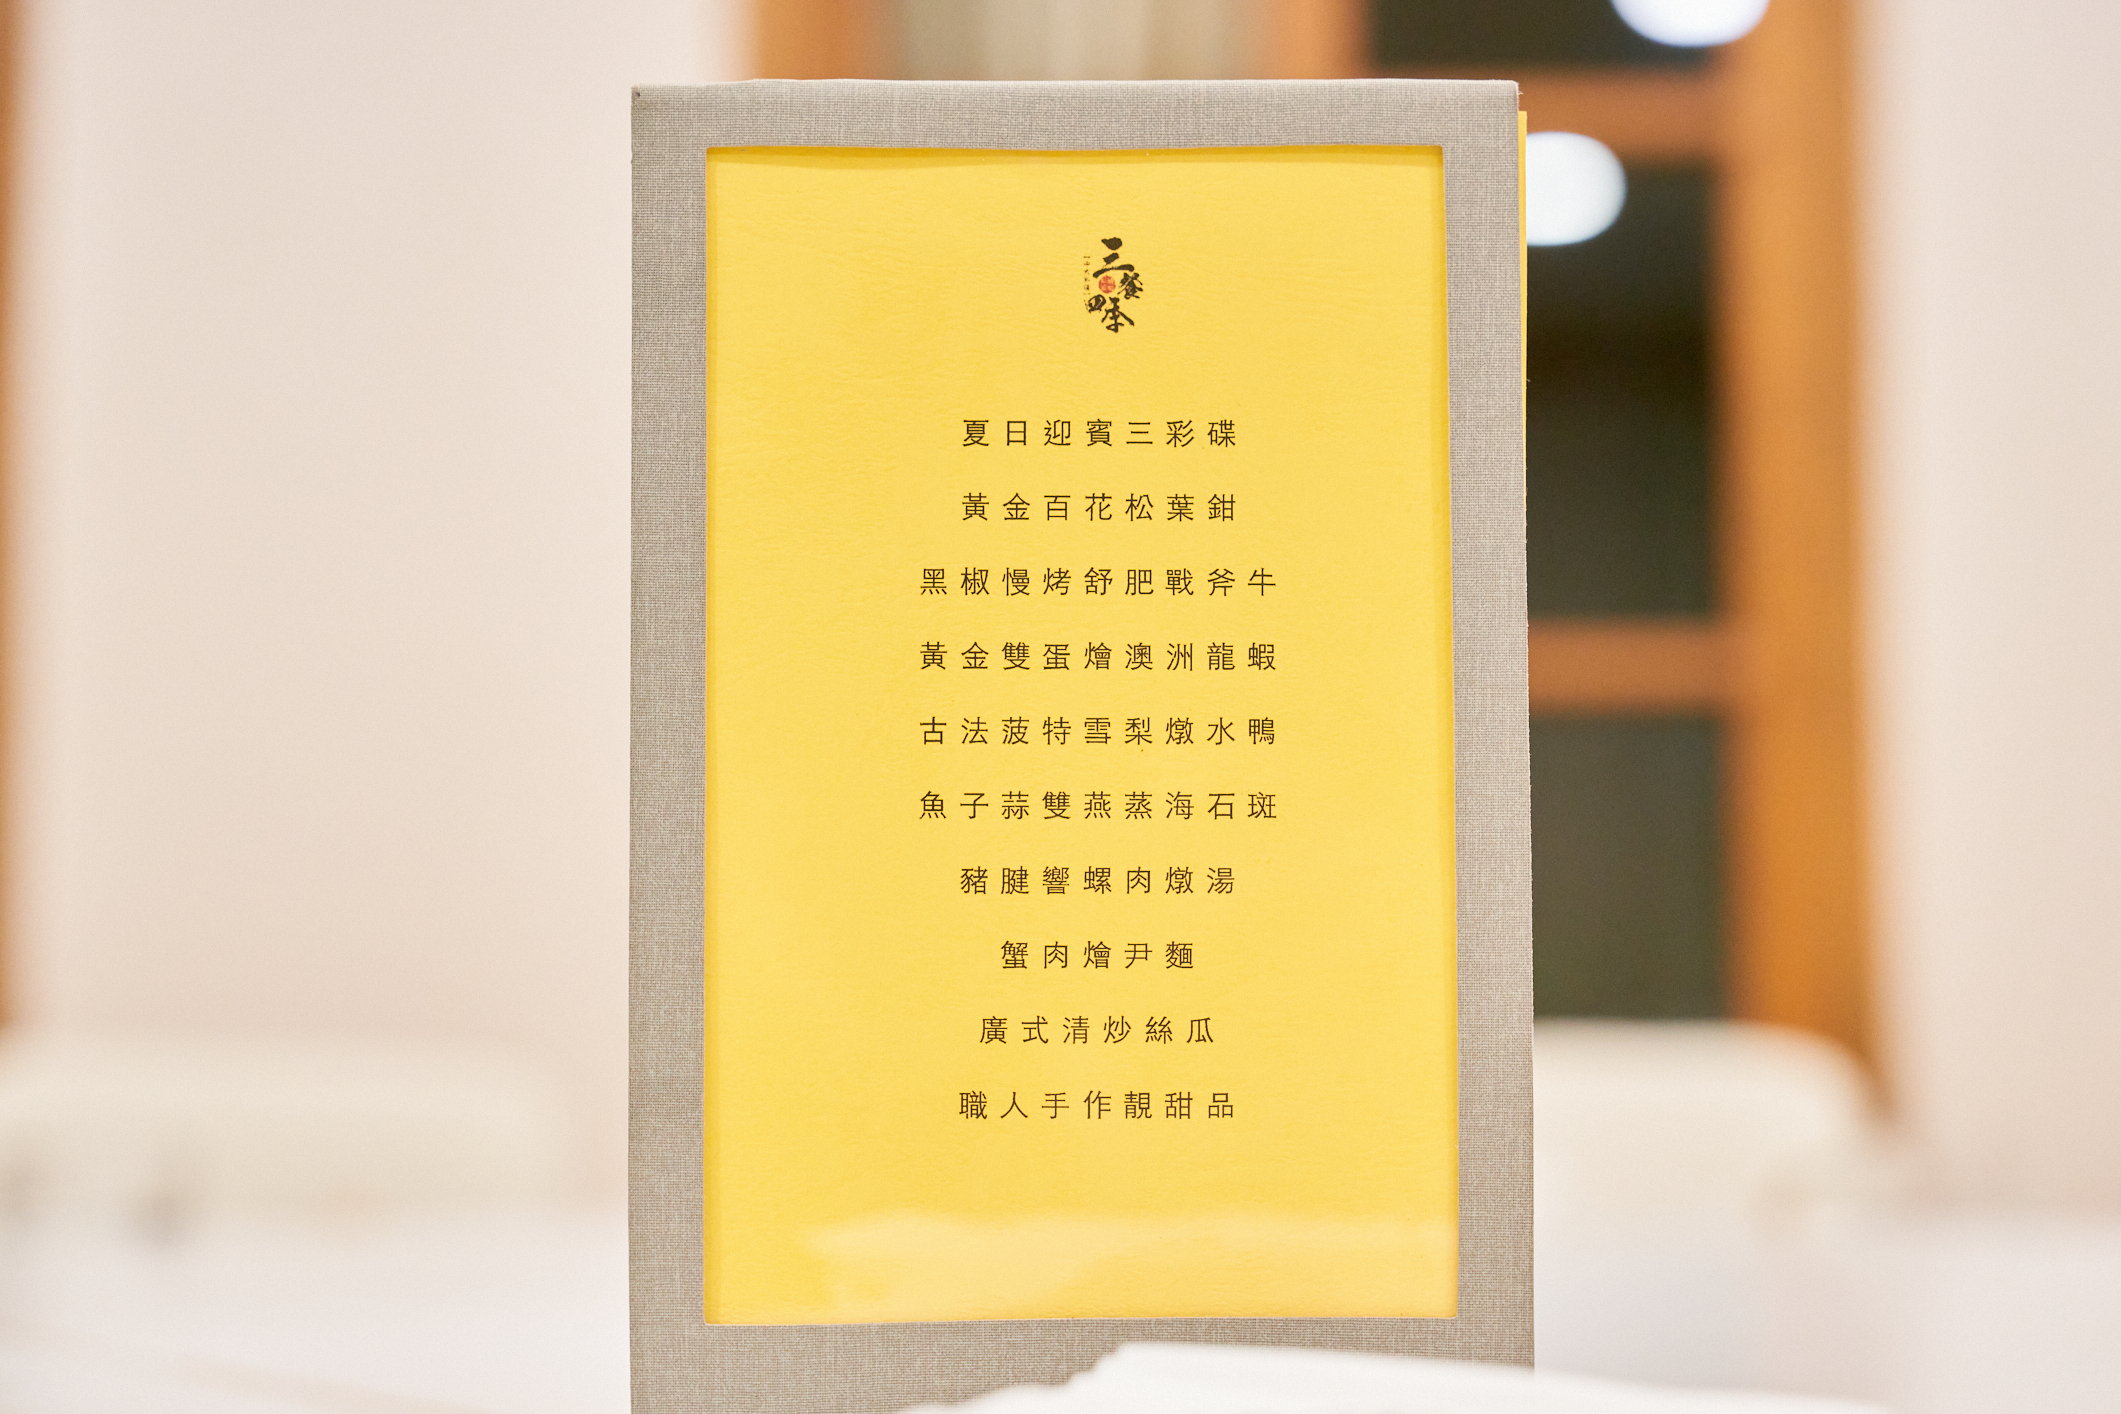 三餐四季
夏日迎賓三彩碟
黃金百花松葉鉗
黑椒慢烤舒肥戰斧牛
黃金雙蛋燴澳洲龍蝦
古法菠特雪梨燉水鴨
魚子蒜雙燕蒸海石斑
豬腱響螺肉燉湯
蟹肉燴尹麵
廣式清炒絲瓜
職人手作靚甜品